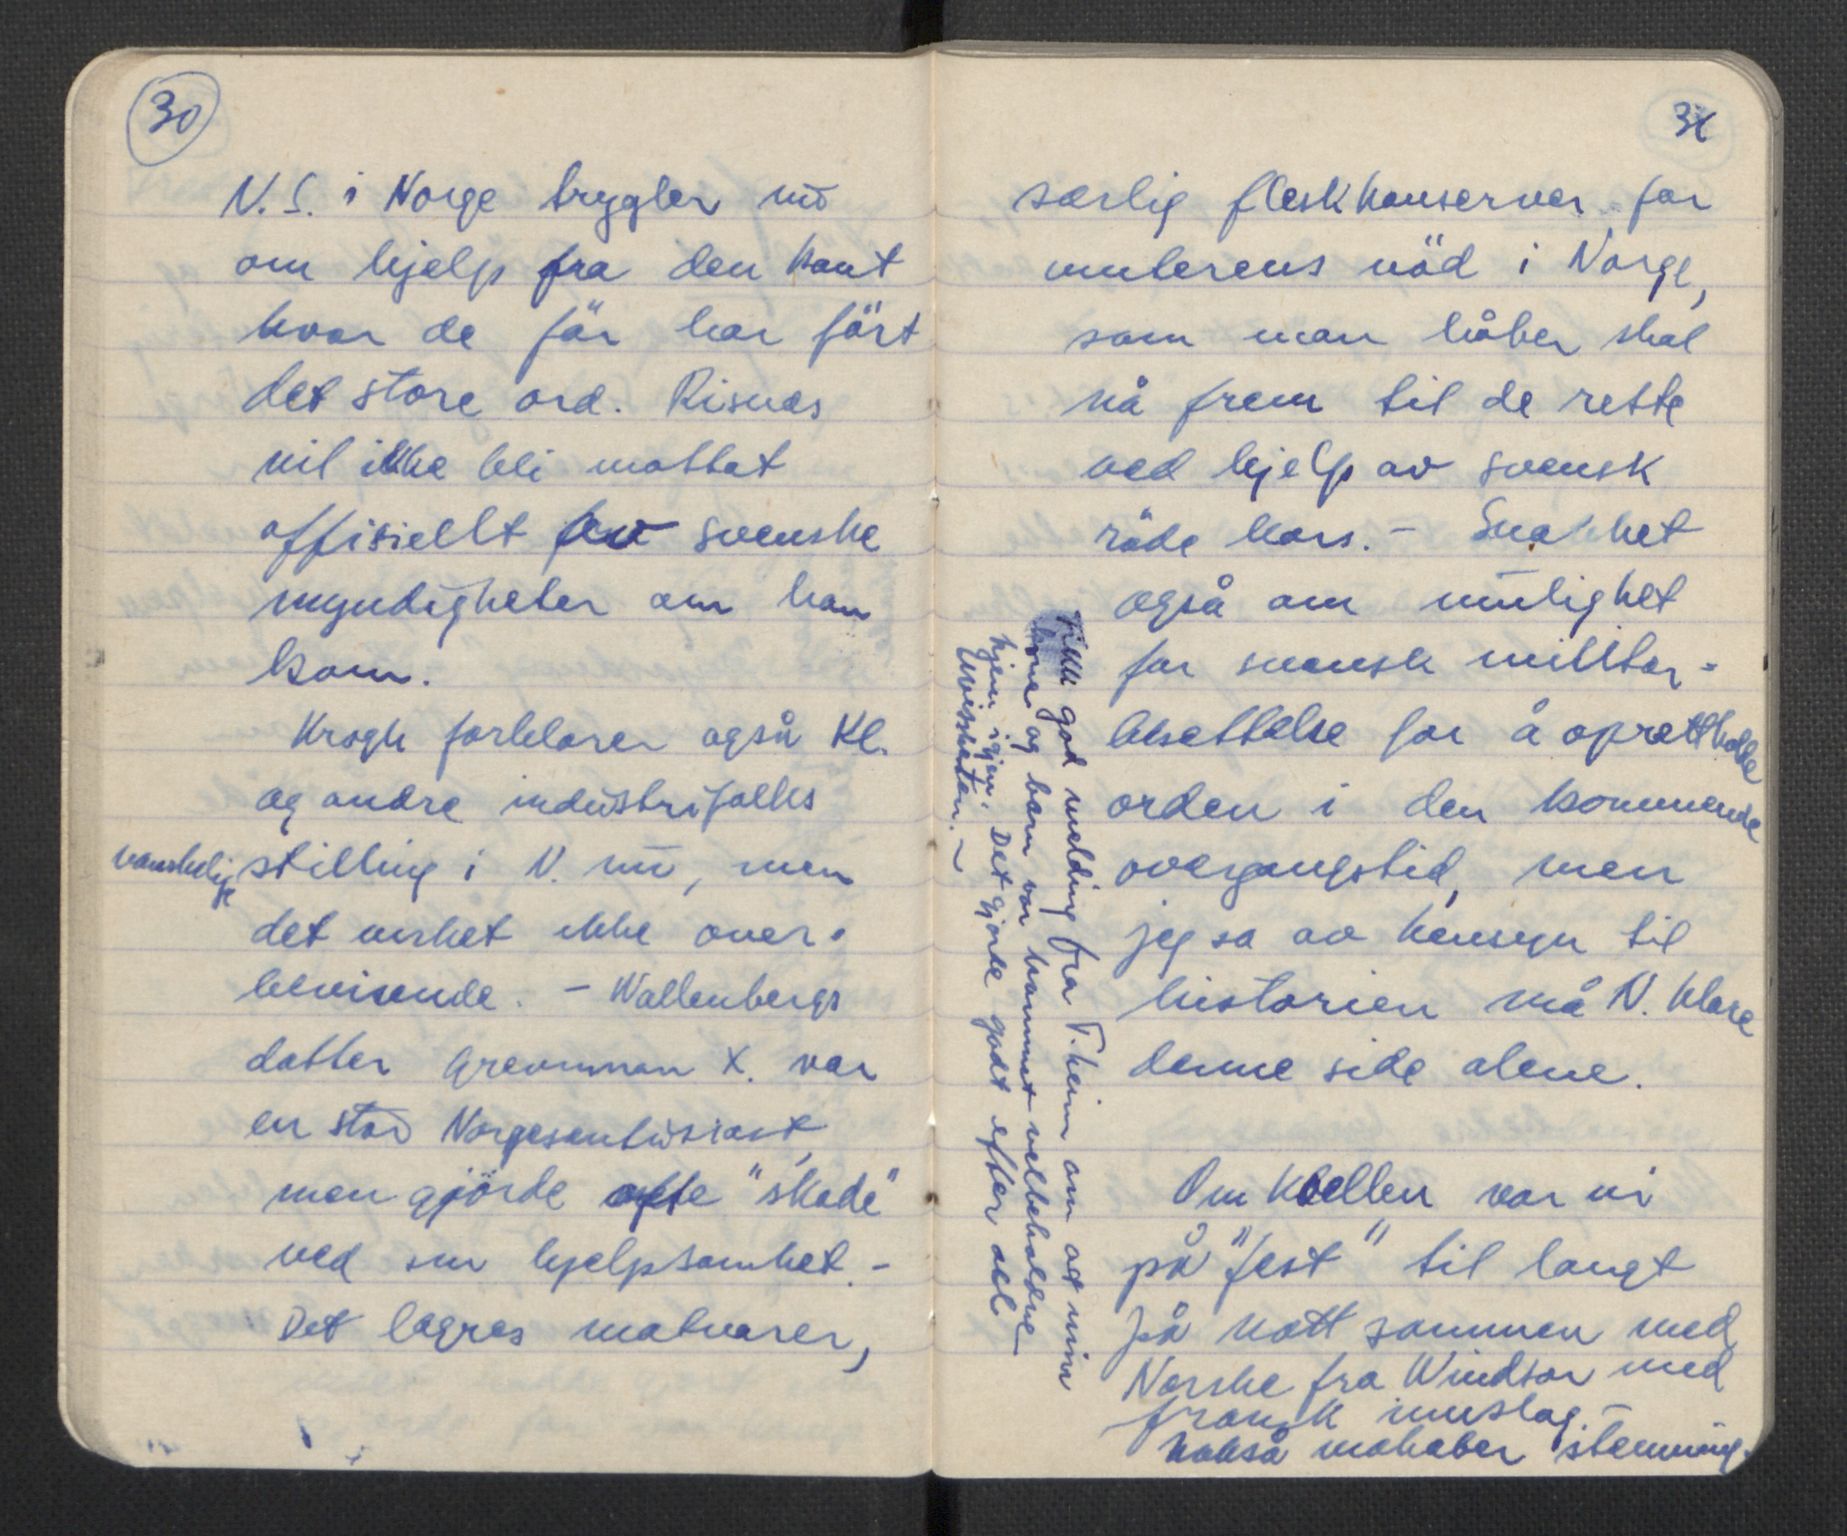 30
N.S. i Norge trygler nū
om hjelp fra den kant
hvor de för har fört
det store ord. Risnæs
vil ikke bli mottat
offisiellt av svenske
myndigheter om han
kom.
Krogh forklarer også Kl.
og andre industrifolks
vanskelige stilling i N. nū, men
det virket ikke over-
bevisende. – Wallenbergs
datter Grevinnan X. var
en stor Norgesentusiast,
men gjörde ofte "skade"
ved sin hjelpsomhet. –
Det lagres matvarer,
31
særlig fleskkonserver for
vinterens nöd i Norge,
som man håber skal
nå frem til de rette
ved hjelp av svensk
röde kors. – Snakket
også om mulighet
for svensk militær-
besettelse for å oprettholde
orden i den kommende
overgangstid, men
jeg sa av hensyn til
historien må N. klare
denne side alene.
Om kvellen var vi
på "fest" til langt
på natt sammen med
Norske fra Windsor med
fransk innslag. –
også makaber stemning.
Fikk god melding fra T.heim om at min
kone og barn var kommet velbeholdne
hjem igjen. Det gjorde godt efter all
uvissheten. –